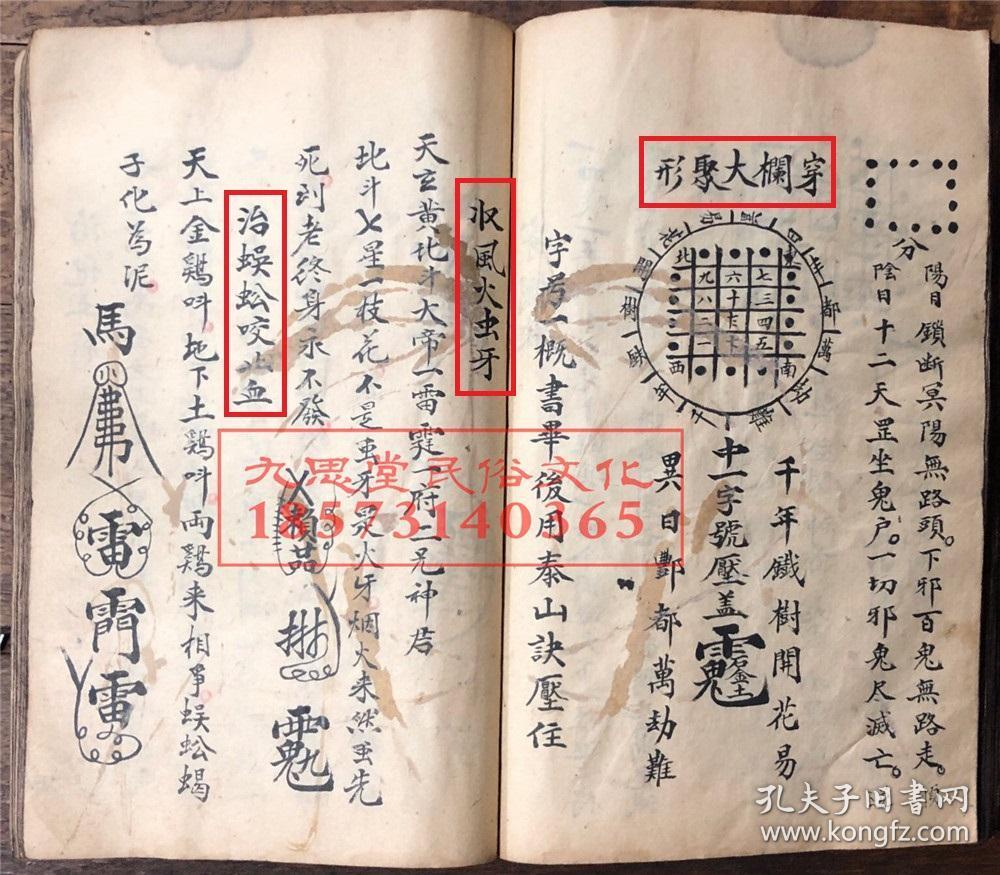 分
陽日鎖断冥陽無路頭。下邪百鬼無路走。
陰日十二天罡坐鬼户。一切邪鬼尽滅亡。
穿欄大聚形
北 九 六 七
八 十 三
二 四
一 五
西 南
樹 都 萬
千年鐵樹開花易
異日酆都萬劫難
中一字號壓盖
字号一概書畢後用泰山訣壓住
收風火虫牙
天立黄北斗大帝一雷霆一附二兄神君
北斗七星一枝花不是虫牙是火牙烟火来然虫先
死到老终身永不發
治蜈蚣咬止血
天上金鷄呌地下土鷄呌両鷄来相争蜈蚣蝎
子化為泥
馬
小
雷
九思堂民俗文化
18573140365
孔夫子旧书网
www.kongfz.com